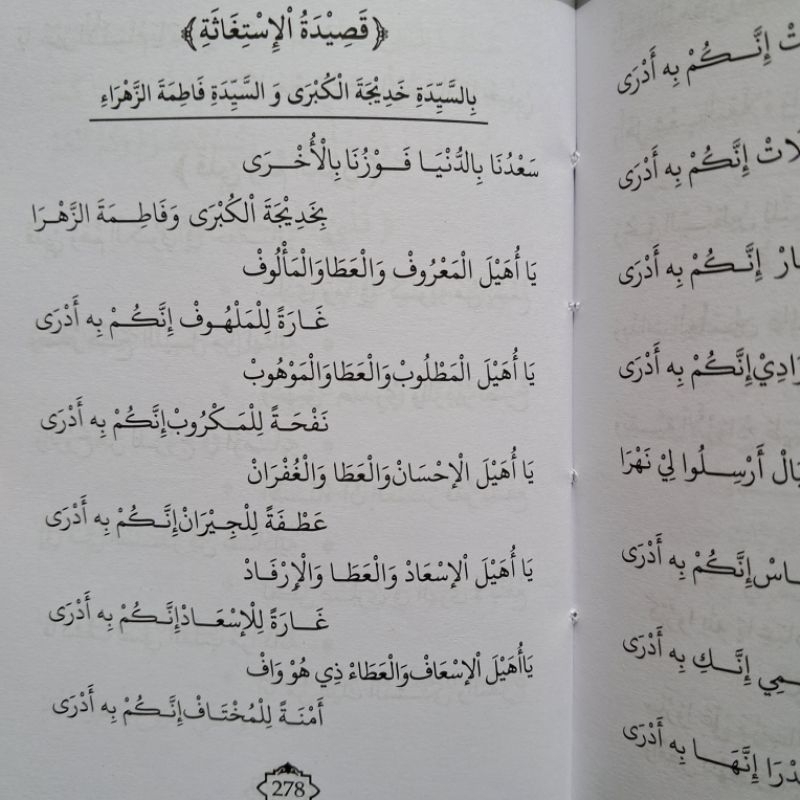 ﴿قَصِيْدَةُ الْإِسْتِغَاثَةِ﴾
بِالسَّيِّدَةِ خَدِيْجَةَ الْكُبْرَى وَ السَّيِّدَةِ فَاطِمَةَ الزَّهْرَاءِ
سَعْدُنَا بِالدُّنْيَا فَوْزُنَا بِالْأُخْرَى
بِخَدِيْجَةَ الْكُبْرَى وَفَاطِمَةَ الزَّهْرَا
يَا أُهَيْلَ الْمَعْرُوفْ وَالْعَطَا وَالْمَأْلُوفْ
غَارَةً لِلْمَلْهُوفْ إِنَّكُمْ بِه أَدْرَى
يَا أُهَيْلَ الْمَطْلُوبْ وَالْعَطَا وَالْمَوْهُوبْ
نَفْحَةً لِلْمَكْرُوبْ إِنَّكُمْ بِه أَدْرَى
يَا أُهَيْلَ الْإحْسَانْ وَالْعَطَا وَالْغُفْرَانْ
عَطْفَةً لِلْجِيْرَانْ إِنَّكُمْ بِه أَدْرَى
يَا أُهَيْلَ الْإسْعَادْ وَالْعَطَا وَالْإِرْفَادْ
غَارَةً لِلْإسْعَادْ إِنَّكُمْ بِه أَدْرَى
يَاأُهَيْلَ الْإسْعَافْ وَالْعَطَاءْ ذِي هُوْ وَافْ
أَمْنَةً لِلْمُخْتَافْ إِنَّكُمْ بِه أَدْرَى
278
إِنَّكُمْ بِه أَدْرَى
إِنَّكُمْ بِه أَدْرَى
إِنَّكُمْ بِه أَدْرَى
إِنَّكُمْ بِه أَدْرَى
أَرْسِلُوا لِيْ نَهْرَا
إِنَّكُمْ بِه أَدْرَى
إِنَّكِ بِه أَدْرَى
إِنَّهَا بِه أَدْرَى